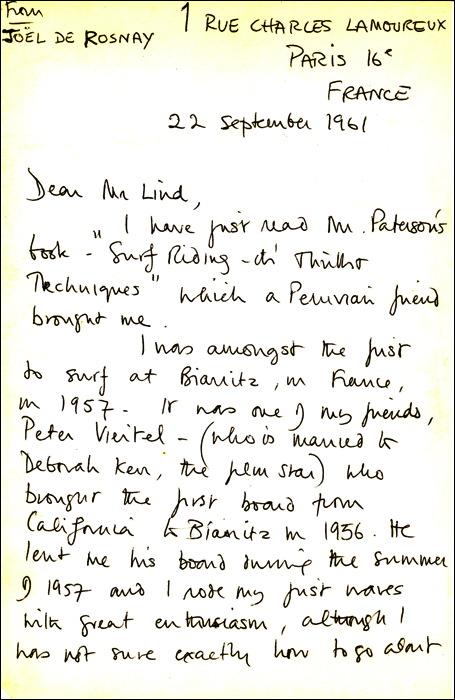 From
JOËL DE ROSNAY
1 RUE CHARLES LAMOUREUX
PARIS 16e
FRANCE
22 September 1961
Dear Mr Lind,
I have just read Mr. Paterson's
book - "Surf Riding - its Thrills &
Techniques" which a Peruvian friend
brought me.
I was amongst the first
to surf at Biarritz, in France,
in 1957. It was one of my friends,
Peter Viertel - (who is married to
Deborah Kerr, the film star) who
brought the first board from
California to Biarritz in 1956. He
lent me his board during the summer
of 1957 and I rode my first waves
with great enthusiasm, although I
was not sure exactly how to go about